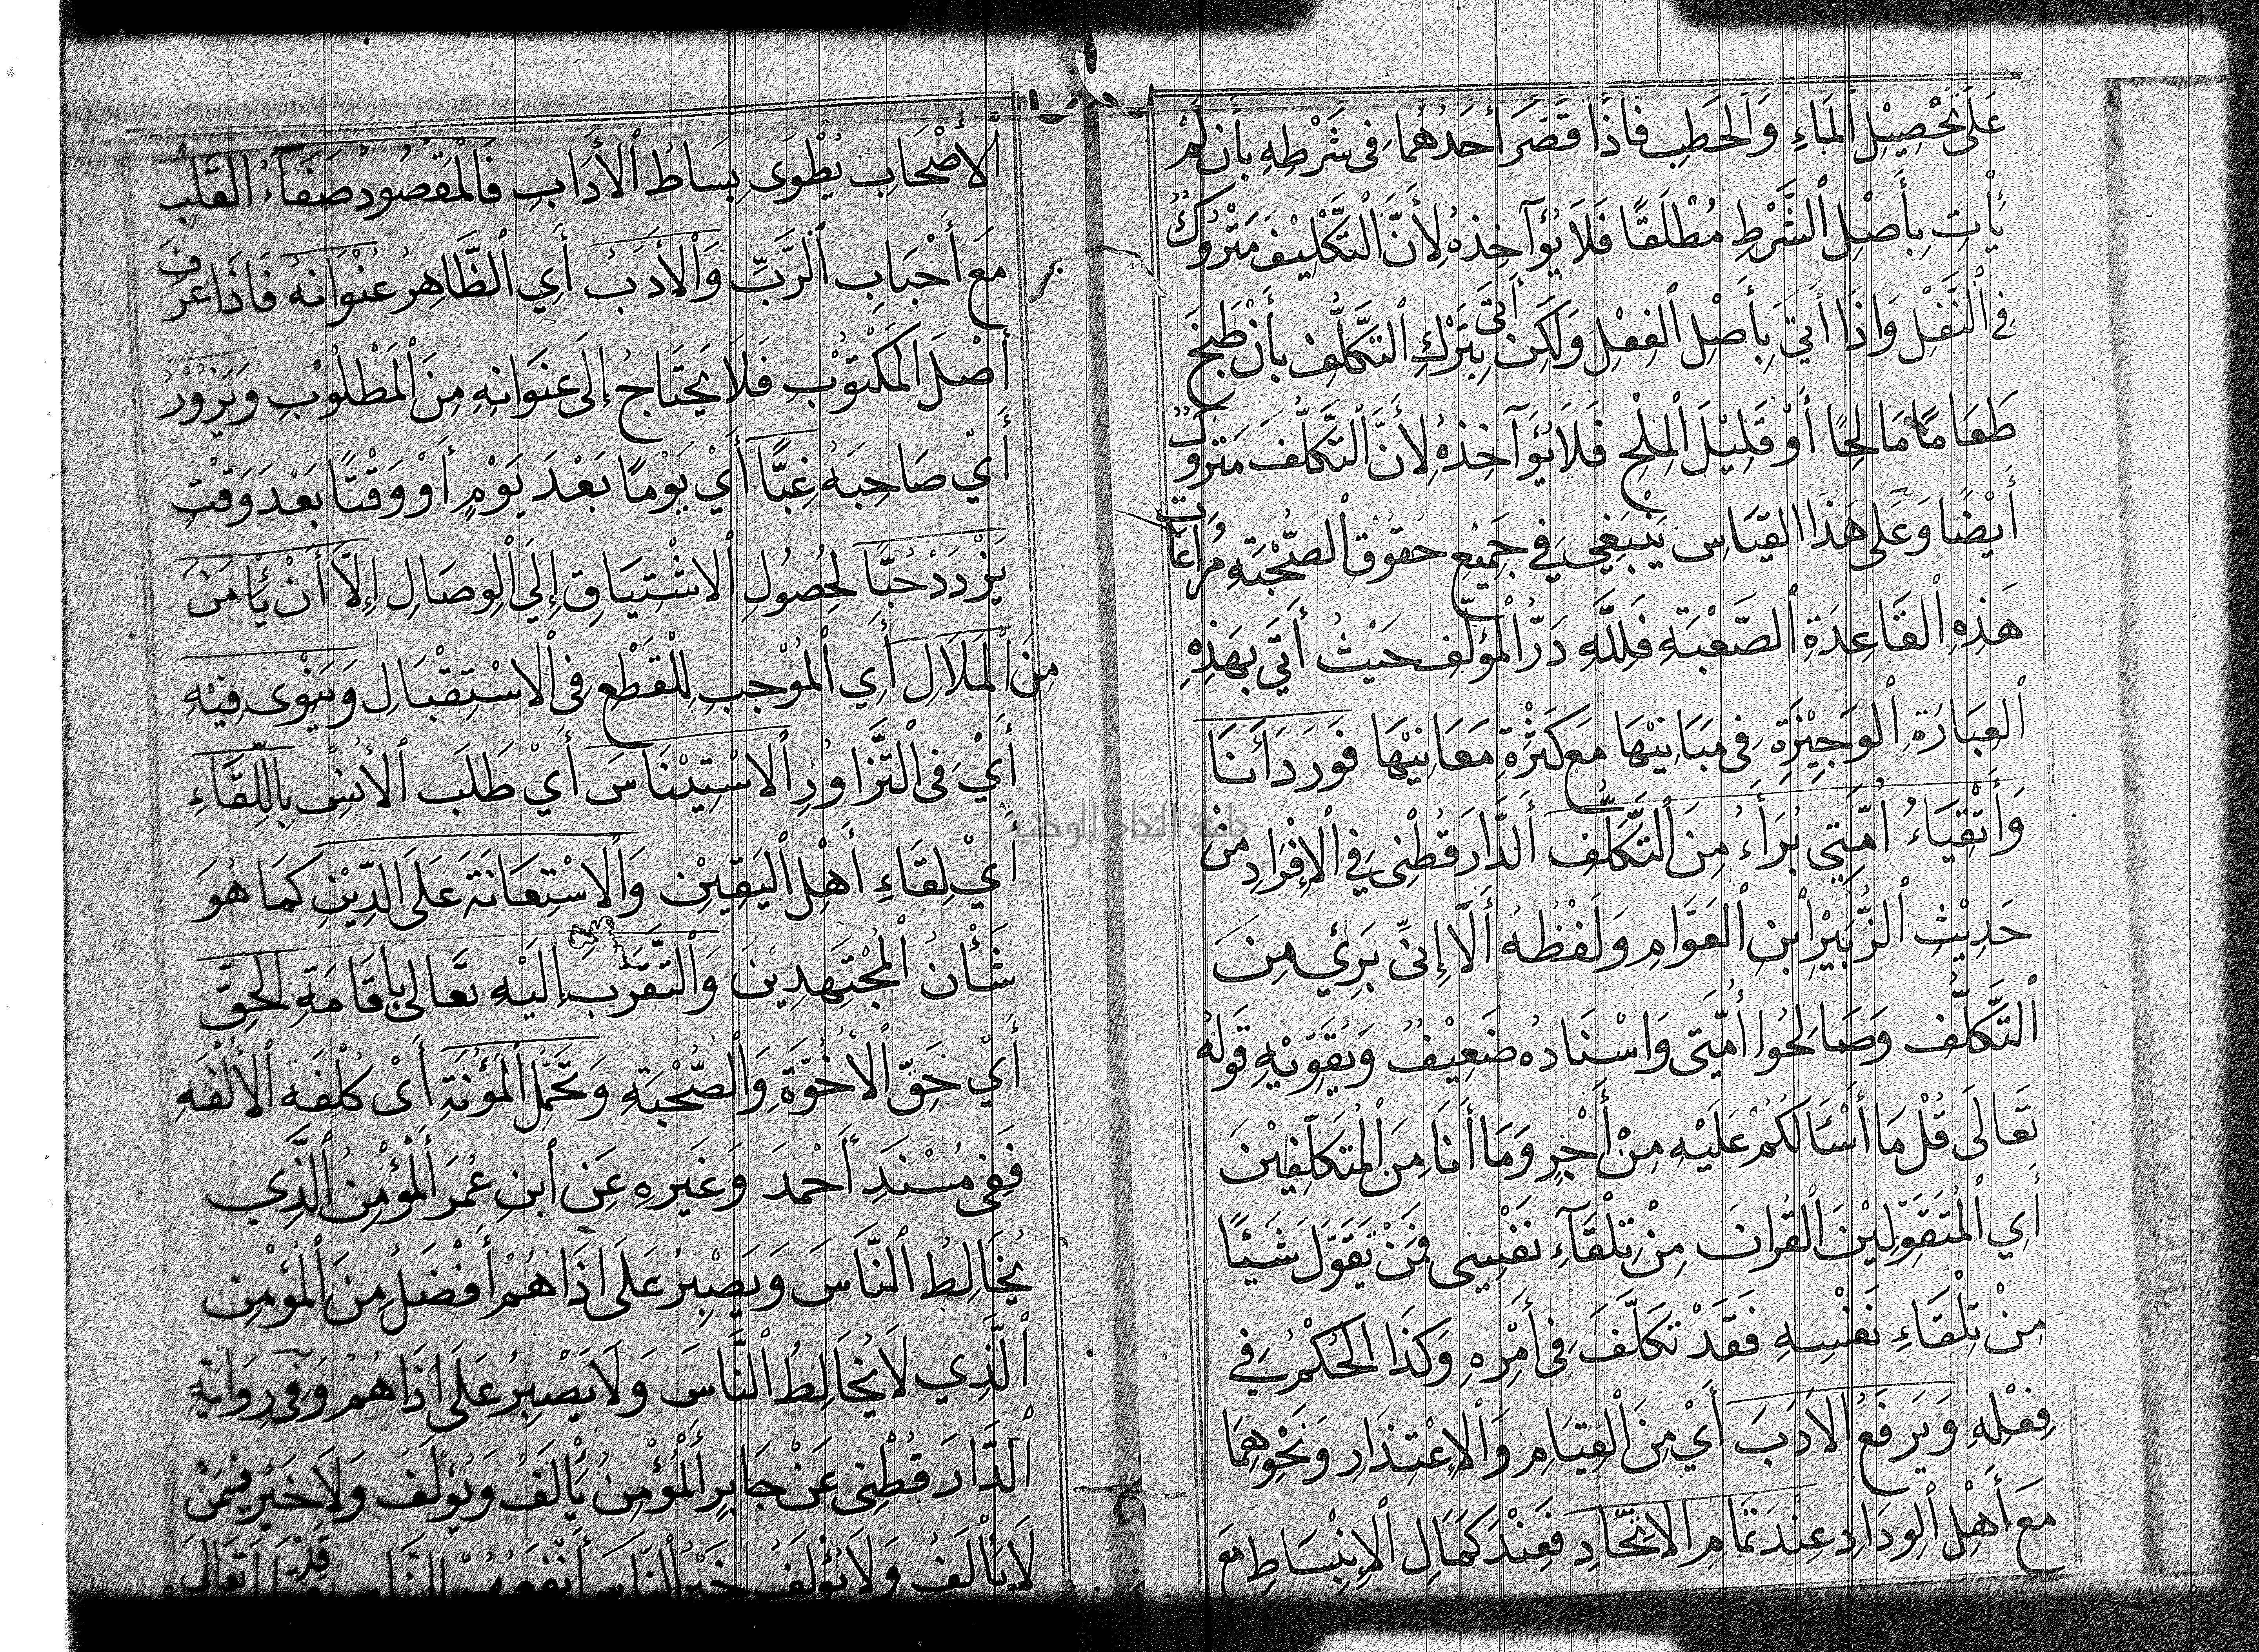 عَلَى تَحْصِيْلِ الْمَاءِ وَالْحَطَبِ فَاذَا قَصَّرَ أَحَدُهُمَا فِى شَرْطِهِ بِأَن لَمْ
يَأْتِ بِأَصْلِ الشَّرْطِ مُطْلَقًا فَلَا يُؤَآخِذهُ لِأَنَّ التَّكْلِيْفَ مَتْرُوكٌ
فِي النَّفْلِ وَاذَا أَتَي بِأَصْلِ الفِعْلِ وَلَكِن أَتَى بِتَرْكِ التَّكَلُّفِ بِأَنْ طَبَخَ
طَعَامًا مَالِحًا أَوْ قَلِيْلَ الْمِلْحِ فَلَا يُؤَآخِذهُ لِأَنَّ التَّكَلُّفَ مَتْرُوكٌ
أَيْضًا وَعَلَى هَذَا القِيَاسِ يَنْبَغِي فِي جَمِيْعِ حُقُوْقِ الصُّحْبَةِ مُرَاعَات
هَذِهِ الْقَاعِدَةِ الصَّعْبَةِ فَلِلَّهِ دَرُّ الْمُؤَلِّفِ حَيْثُ أَتَى بِهَذِهِ
العِبَارَةِ الوَجِيْزَةِ فِى مَبَانِيْهَا مَعَ كَثْرَةِ مَعَانِيْهَا فَوَرَدَ أَنَا
وَأَتْقِيَاءُ أُمَّتِي بُرَأَءُ مِنَ التَّكَلُّفِ أَلدَّارَقُطْنِى فِي الْإِفْرَادِ مِنْ
حَدِيْثِ الزُّبَيْرِ ابْنِ الْعَوَّامِ وَلَفْظُهُ أَلَا إِنِّى بَرِئٌ مِنَ
التَّكَلُّفِ وَصَالِحُوا أُمَّتِى وَاسْنَادُه ضَعِيْفٌ وَيُقَوِّيْهِ قَولُهُ
تَعَالَى قُلْ مَا أَسْئَالُكُمْ عَلَيْهِ مِنْ أَجْرٍ وَمَا أَنَا مِنَ الْمُتَكَلِّفِيْنَ
أَيِ الْمُتَقَوِّلِيْنَ الْقُرْانَ مِنْ تِلْقَآءِ نَفْسِى فَمَنْ تَقَوَّلَ شَيْئًا
مِنْ تِلْقَاءِ نَفْسِهِ فَقَدْ تَكَلَّفَ فِى أَمْرِهِ وَكَذَا الْحُكْمُ فِي
فِعْلِهِ وَيَرفَعُ الأَدَبَ أَيْ مِنَ الْقِيَامِ وَالْإِعْتِذَارِ وَنَحْوِهِمَا
مَعَ أَهْلِ الوِدَادِ عِنْدَ تَمَامِ الاتِّحَادِ فَعِنْدَ كَمَالِ الْإِنْبِسَاطِ مَعَ
الأَصْحَابِ يُطْوَى بِسَاطُ الْأَدَابِ فَالْمَقْصُودُ صَفَآءُ القَلْبِ
مَعَ أَحْبَابِ الرَّبِّ وَالْأَدَبُ أَيِ الظَّاهِرُ عُنْوَانهُ فَاذَا عَرَفَ
أَصْلَ الْمَكْتُوْبِ فَلَا يَحْتَاجُ إِلَى عُنْوَانِهِ مِنَ الْمَطْلُوْبِ وَيَزُوْرُ
أَيْ صَاحِبَهُ غِبًّا أَيْ يَوْمًا بَعْدَ يَوْمٍ أَوْ وَقْتًا بَعْدَ وَقْتٍ
يَزْدَدْ حُبًّا لِحُصُولِ الاشْتِيَاقِ إِلَي الْوِصَالِ إِلَّا أَنْ يَأْمَنَ
مِنَ الْمَلَالِ أَيِ الْمُوْجِبِ لِلْقَطْعِ فِى الْاسْتِقْبَالِ وَيَنْوِى فِيْهِ
أَيْ فِى التَّزَاوُرِ الاسْتِيْنَاسَ أَيْ طَلَبَ الْأُنْسِ بِاللِّقَاءِ
أَيْ لِقَاءِ أَهْلِ الْيَقِيْنِ وَالْاسْتِعَانَةَ عَلَى الدِّيْنِ كَمَا هُوَ
شَأْنُ الْمُجْتَهِدِيْنَ وَالتَّقَرُّبَ إِلَيْهِ تَعَالى بِاقَامَةِ الْحَقِّ
أَيْ حَقِّ الْأُخُوَّةِ وَالْصُّحْبَةِ وَتَحَمُّلِ الْمَؤُنَةِ أَيْ كُلْفَةِ الْأُلْفَةِ
فَفِى مُسْنَدِ أَحْمَدَ وَغَيرِهِ عَن ابْنِ عُمَرَ أَلْمُؤْمِنُ الَّذِي
يُخَالِطُ النَّاسَ وَيَصْبِرُ عَلَى اذَاهُمْ أَفْضَلُ مِنَ الْمُؤْمِنِ
الَّذِي لَا يُخَالِطُ النَّاسَ وَلَا يَصْبِرُ عَلَى اذَاهُمْ وَفِى رِوَايَةِ
الدَّارَقُطْنِى عَنْ جَابِرٍ أَلْمُؤْمِنُ يَأْلَفُ وَيُؤْلَفُ وَلَا خَيْرَ فِيمَنْ
لَا يَأْلَفُ وَلَا يُؤْلَفُ خَيْرُ النَّاسِ أَنْفَعُهُمْ لِلنَّاسِ
جامعة النجاح الوطنية